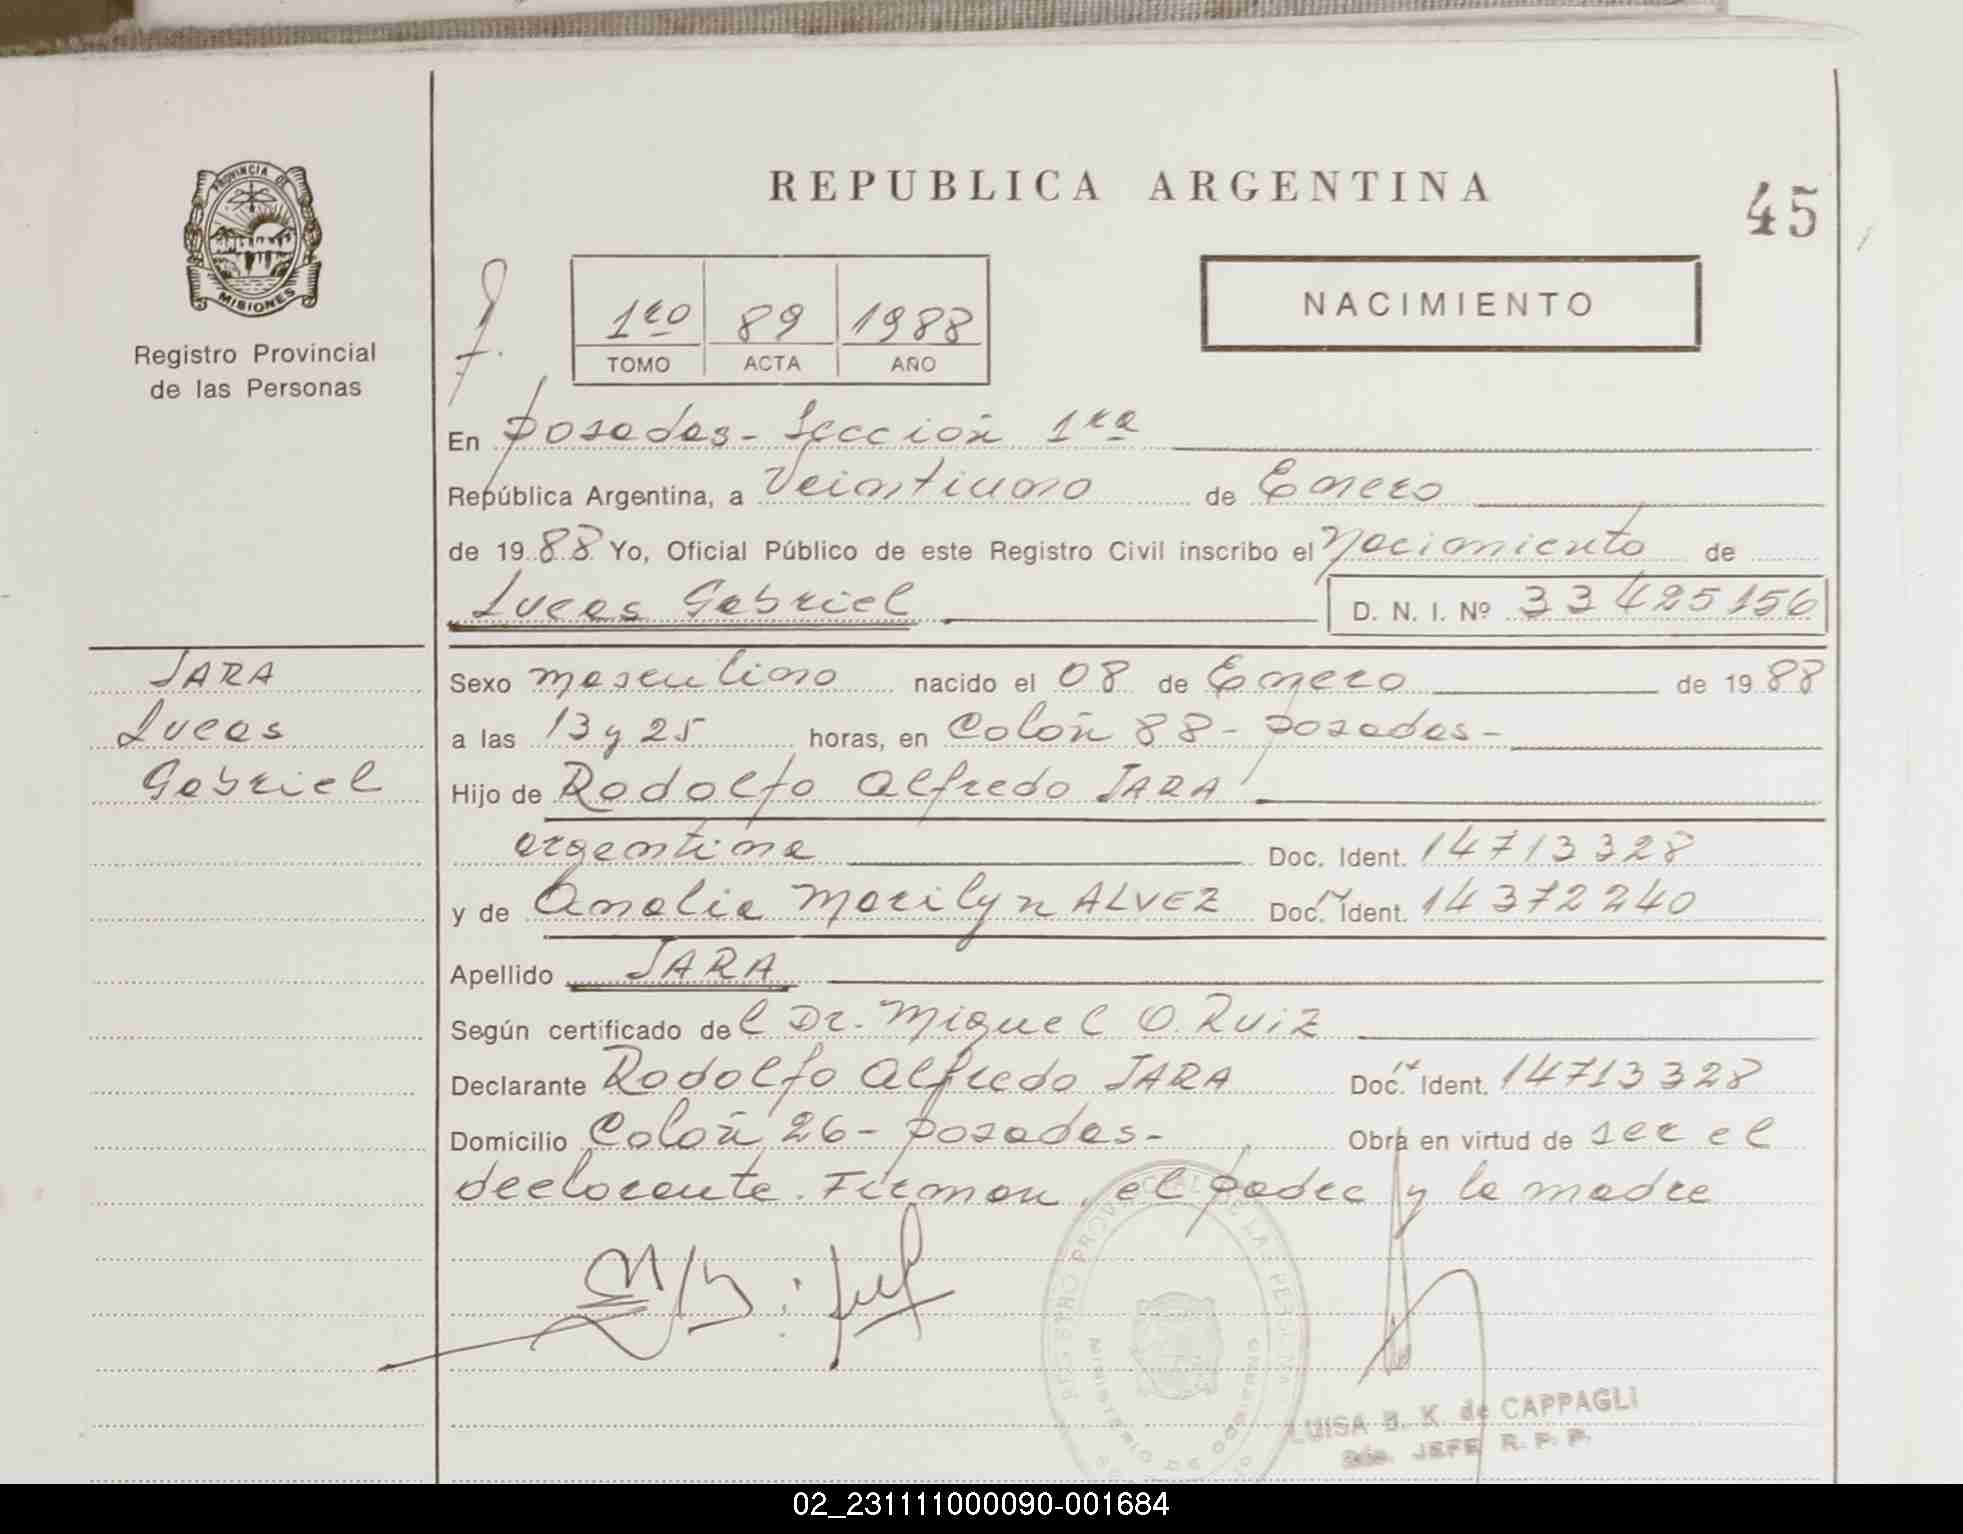 PROVINCIA DE
MISIONES
Registro Provincial
de las Personas
REPUBLICA ARGENTINA
45
1ro 89 1988
TOMO ACTA AÑO
NACIMIENTO
En Posadas - Sección 1ra
República Argentina, a Veintiuno de Enero
de 1988 Yo, Oficial Público de este Registro Civil inscribo el Nacimiento de
Lucas Gabriel D. N. I. Nº 33425156
JARA
Lucas
Gabriel
Sexo masculino nacido el 08 de Enero de 1988
a las 13 y 25 horas, en Colón 88 - Posadas -
Hijo de Rodolfo Alfredo JARA
argentina Doc. Ident. 14713328
y de Analia Marilyn ALVEZ Doc. Ident. 14372240
Apellido JARA
Según certificado del Dr. Miguel O. Ruiz
Declarante Rodolfo Alfredo JARA Doc. Ident. 14713328
Domicilio Colón 26 - Posadas - Obra en virtud de ser el
declarante. Firman, el padre y la madre
REGISTRO PROVINCIAL DE LAS PERSONAS
MINISTERIO DE GOBIERNO
LUISA B. K. de CAPPAGLI
JEFE R. P. P.
02_231111000090-001684